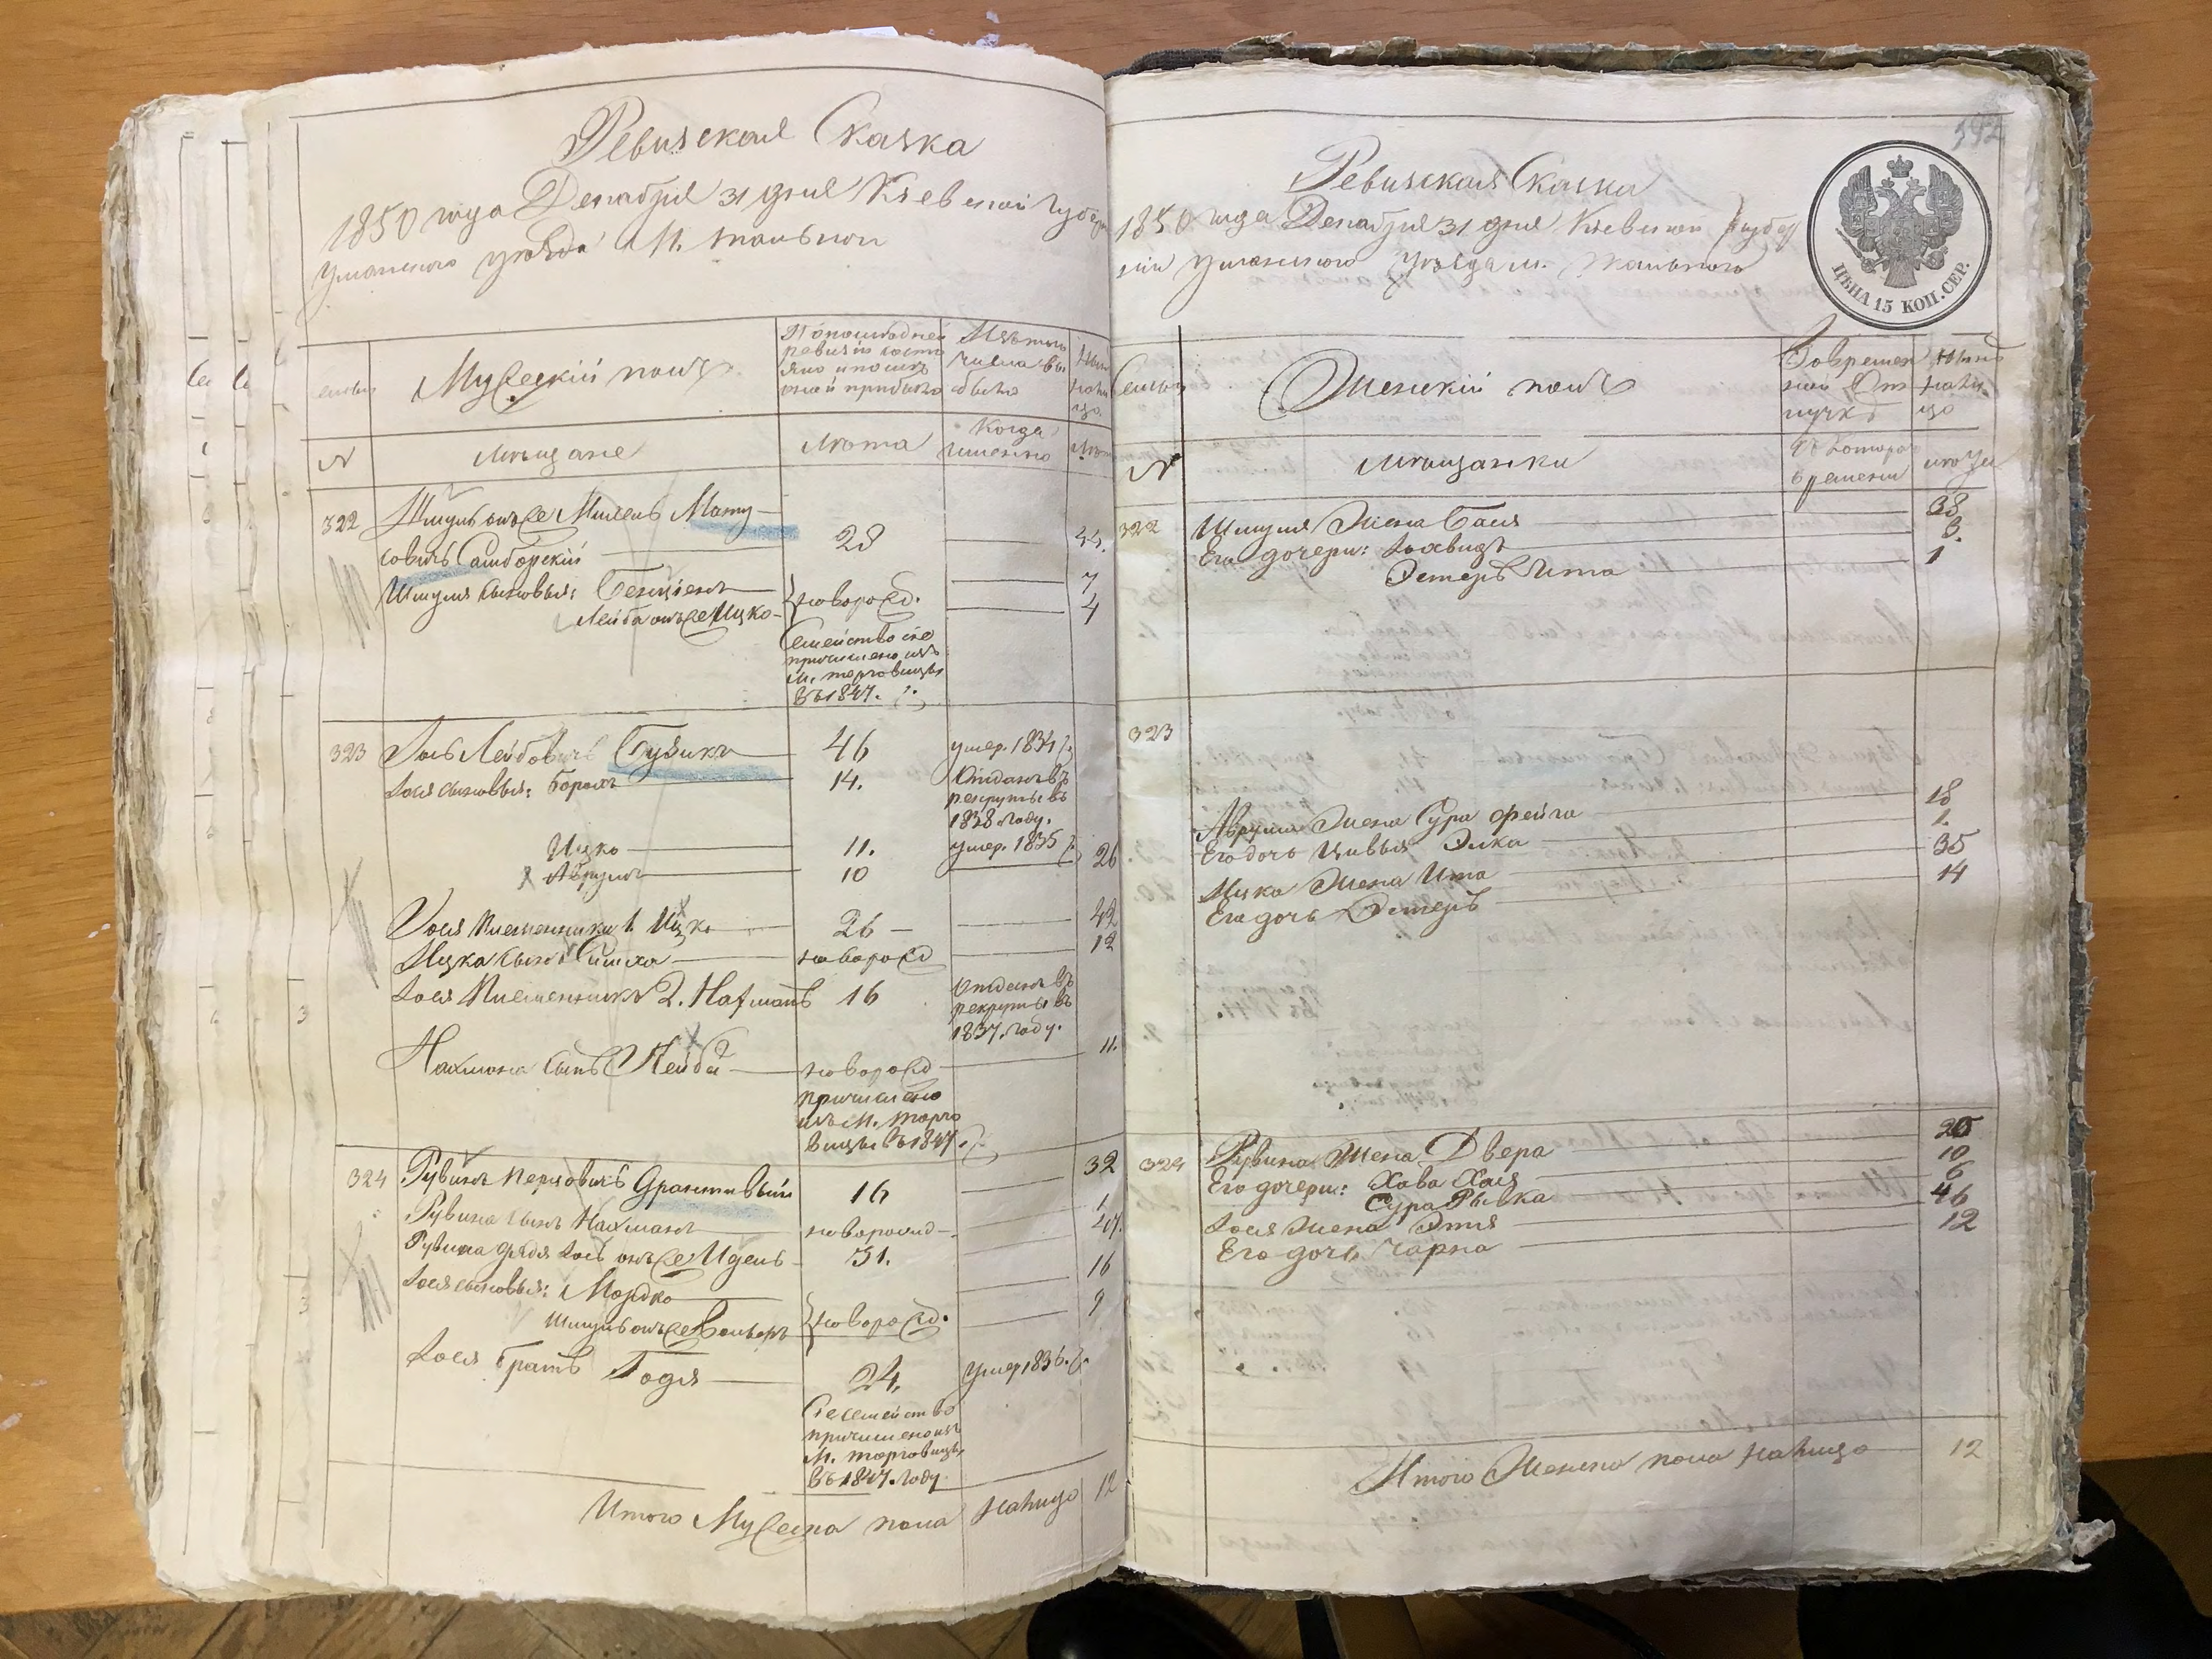 Ревизская Сказка
1850 года Декабря 31 дня Киевской Губер
Уманского уезда М. Тального
Семьи
Мужеский полъ
По последней
ревизіи состо
яло и после
оной прибыло
Изъ того
числа вы
было
Ныне
на ли
цо
N
Мещане
Лета
Когда
именно
Лета
322
Шмуль онъ же Михель Мату-
28
44.
совичъ Самборскій
Шмуля сыновья: Бенціонъ
новорожд.
7
Лейба онъ же Ицко
4
Семейство сіе
причислено изъ
М. Торговицы
въ 1847. г.
323
Іось Лейбовичъ Бузикъ
46
умер. 1834 г.
Іося сыновья: Борохъ
14.
Отданъ въ
рекруты въ
1838 году.
Ицко
11.
умер. 1835 г.
Аврумъ
10
26
Іося племянники 1. Ицко
26
42
Ицка сынъ Симха
новорожд
12
Іося племянникъ 2. Нахманъ
16
Отданъ въ
рекруты въ
1837 году.
Нахмана сынъ Лейба
новорожд
11.
причислено
изъ М. Торго
вицы въ 1847 г.
324
Рувинъ Перцовичъ Драчтивый
16
32
Рувина сынъ Нахманъ
новорожд
1
Рувина дядя Іось онъ же Идель
31.
47.
Іося сыновья: Мордко
новорожд.
16
Шмуль онъ же Вольфъ
9
Іося братъ Годя
24.
умер 1836. г.
Сіе семейство
причислено изъ
М. Торговицы
въ 1847. году
Итого Мужеска пола на лицо
12
Ревизская Сказка
1850 года Декабря 31 дня Киевской Губер
ніи Уманского Уезда м. Тального
ЦѢНА 15 КОП. СЕР.
Семьи
Женскій полъ
Во времен
ной От
лучке
Ныне
на ли
цо
N
Мещанки
Съ котора
времени
322
Шмуля Жена Бася
38
Его дочери: Іохвидъ
3.
Эстеръ Ита
1
323
Аврума Жена Сура Фейга
18
Его дочь Цивья Элка
1.
Ицка Жена Ита
35
Его дочь Эстеръ
14
324
Рувина Жена Двера
Его дочери: Хава Хая
10
Сура Рывка
6
Іося Жена Этя
46
Его дочь Чарна
12
Итого Женска пола на лицо
12